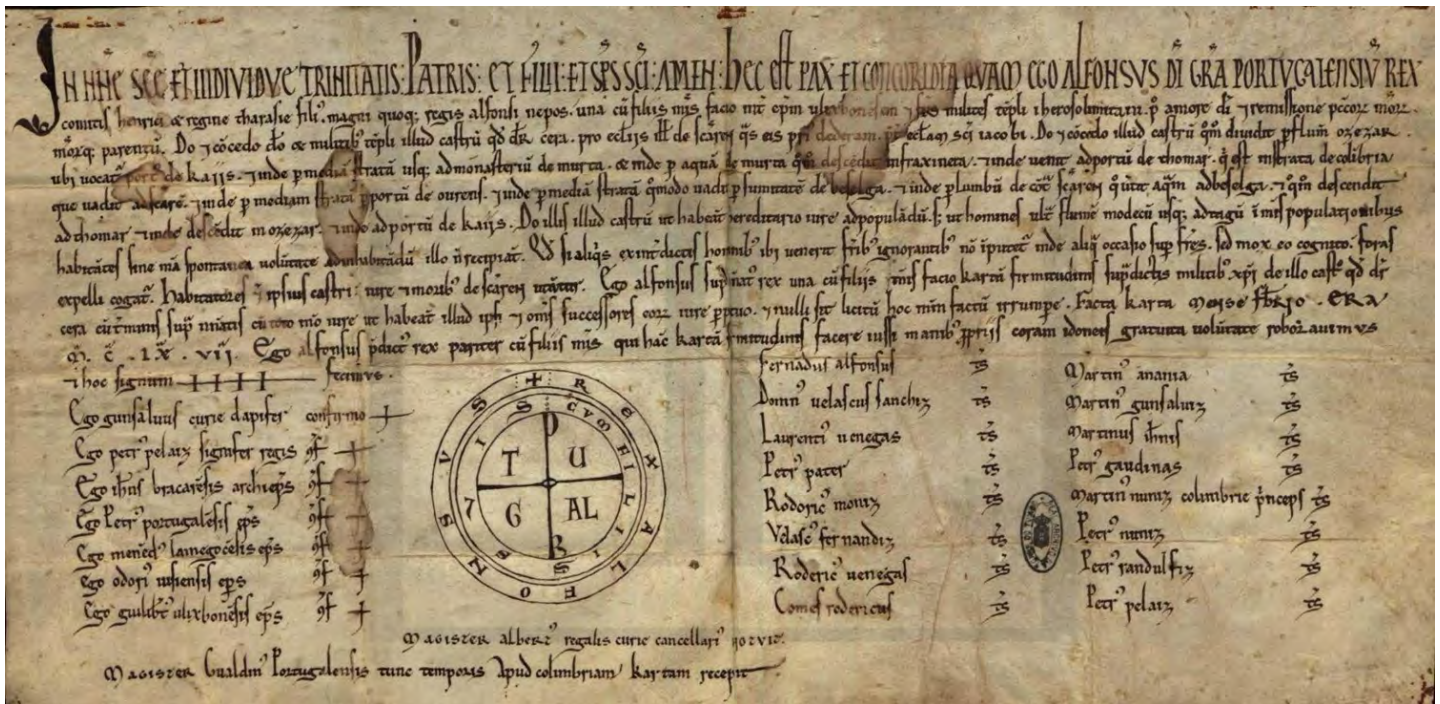 IN NŌĒ SC̄Ē ET INDIVIDUE TRINITATIS: PATRIS: ET FILII: ET SP̄S SC̄I: AMEN: Hec est PAX ET CONCORDIA QVAM EGO ALFONSVS DĪ GRĀ PORTVGALENSIV̄ REX
comitis henrici et regine tharasie filiꝰ. magni quoqꝫ regis alfonsi nepos. una cū filiis meis facio int̄ ep̄m ulixbonensem ⁊ milites tēpli iherosolimitani. p̄ amore dī ⁊ remissione peccoꝝ meoꝝ.
meoꝝqꝫ parentū. Do ⁊ cōcedo dō et militibꝰ tēpli illud castrū qd̄ dr̄ cera. pro ecl̄iis de scāren q̄s eis p̄ dederam. ecl̄am sc̄i iacobi. Do ⁊ cōcedo illud castrū dividit p̄ flum̄ ozezar.
ubi vocat de kaiis. ⁊ inde p mediā stratā usqꝫ ad monasteriū de murta. et inde p aquā de murta descēdit in fraxineta. ⁊ inde venit ad portū de thomar. q̄ est in strata de colibria
que vadit ad scārē. ⁊ inde p mediam stratā p portū de ourens. ⁊ inde p mediā stratā q̄modo vadit p sumitatē de beselga. ⁊ inde p lumbū de scāren aq̄m ad beselga. ⁊ descendit
ad thomar ⁊ inde descēdit in ozezar. ⁊ inde ad portū de kaiis. Do illis illud castrū ut habeāt hereditario iure ad populādū. ut homines ult̄ flumē modecū usqꝫ ad tagū in meis populationibus
habitātes sine mea spontanea volūtate ad inhabitādū illo n̄ recipiāt. Qd̄ si aliq̄s ex int̄dictis hominibꝰ ibi venerit fr̄ibꝰ ignorantibꝰ nō īputet̄ inde aliq̄ occasio sup fr̄es. sed mox eo cognito. foras
expelli cogat̄. habitatores ipsius castri: iure ⁊ moribꝰ de scāren utāt̄. Ego alfonsus sup̄ noīat rex una cū filiis meis facio kartā firmitudinis sup̄dictis militibꝰ xp̄i de illo castro qd̄ dr̄
cera cū t̄minis sup̄ cū toto meo iure ut habeāt illud ip̄i ⁊ oms̄ successores eoꝝ iure p̄petuo. ⁊ nulli sit licitū hoc meum factū irrumpe. Facta karta mense februario. ERA
M. C̄. LX̄. VII. Ego alfonsus p̄dictꝰ rex pariter cū filiis meis qui hāc kartā firmitudinis facere iussi manibꝰ p̄priis coram idoneis gratuita volūtate roboravimus
⁊ hoc signum ++++ fecimus.
Ego gunsaluus curie dapifer confirmo +
Ego petrꝰ pelaiz signifer regis ꝯf +
Ego ioh̄s bracarēsis archiep̄s ꝯf +
Ego Petrꝰ portugalēsis ep̄s ꝯf +
Ego menēdꝰ lamegocēsis ep̄s ꝯf +
Ego odoriꝰ visiensis ep̄s ꝯf +
Ego guilibt̄ ulixbonēsis ep̄s ꝯf +
+ REX ALFONSVS
⁊ CVM FILIIS SVIS
P O R T V G AL
Fernādus alfonsus t̄s
Domnꝰ velascus sanchiz t̄s
Laurentiꝰ venegas t̄s
Petrꝰ pater t̄s
Rodoricꝰ moniz t̄s
Velascꝰ fernandiz t̄s
Rodericꝰ venegas t̄s
Comes rodericus t̄s
Martinꝰ anania t̄s
Martinꝰ gunsaluiz t̄s
Martinus ioh̄nis t̄s
Petrꝰ gaudinas t̄s
Martinꝰ nuniz colimbrie p̄nceps t̄s
Petrꝰ nuniz t̄s
Petrꝰ randulfiz t̄s
Petrꝰ pelaiz t̄s
MAGISTER albertꝰ regalis curie cancellariꝰ notuit.
MAGISTER Gualdinꝰ Portugalensis tunc temporis apud colimbriam kartam recepit